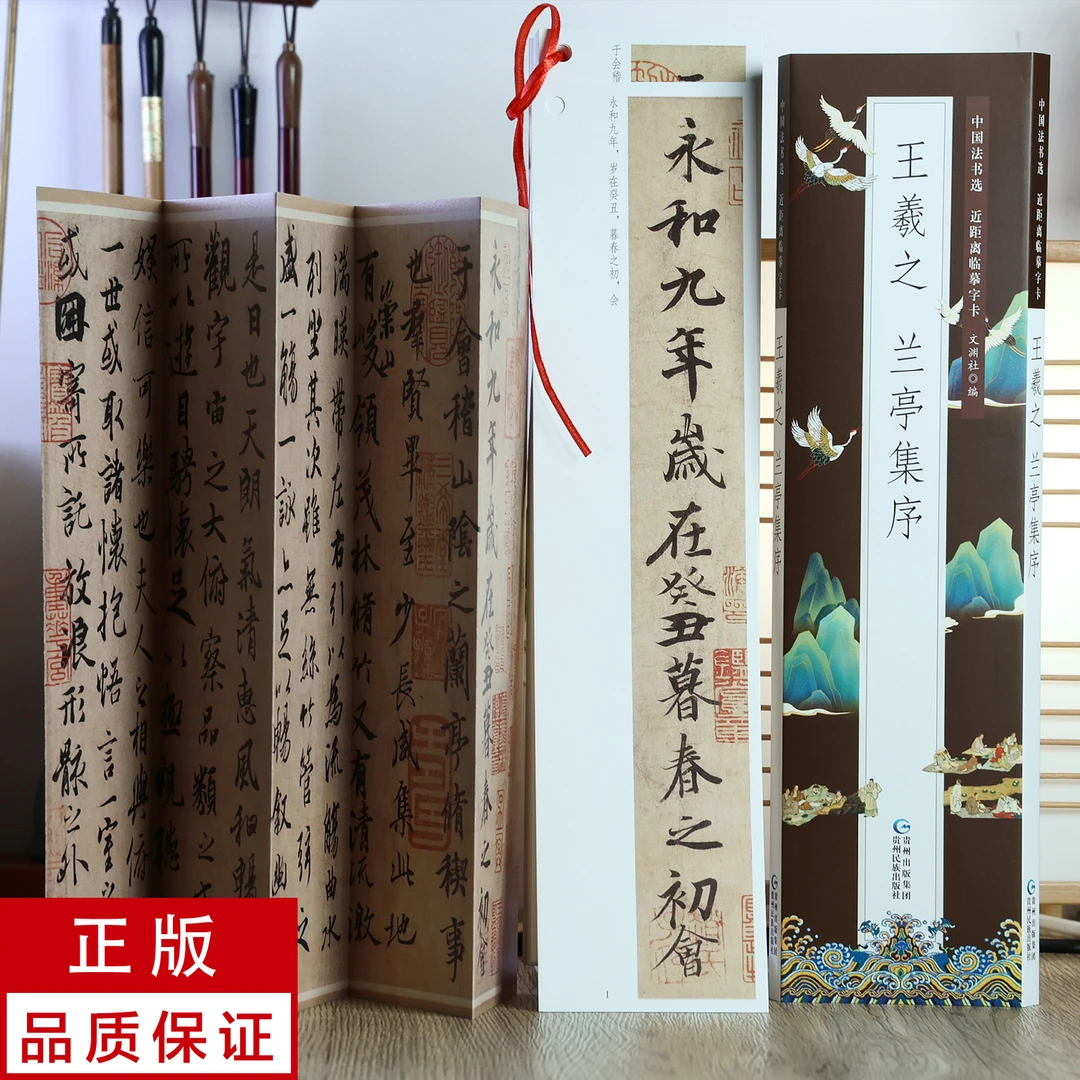 永和九年歲在癸丑暮春之初會
于會稽山陰之蘭亭脩稧事
也羣賢畢至少長咸集此地
有崇山峻領茂林脩竹又有清流激
湍暎帶左右引以為流觴曲水
列坐其次雖無絲竹管弦之
盛一觴一詠亦足以暢叙幽
是日也天朗氣清惠風和暢
觀宇宙之大俯察品類之
所以遊目騁懷足以極視聽
娛信可樂也夫人之相與俯
一世或取諸懷抱悟言一室之
或因寄所託放浪形骸之外
永和九年歲在癸丑暮春之初會
永和九年，岁在癸丑，暮春之初，会
于会稽
1
中国法书选 近距离临摹字卡
王羲之 兰亭集序
贵州出版集团
贵州民族出版社
中国法书选 近距离临摹字卡 文渊社◎编
王羲之 兰亭集序
贵州出版集团
贵州民族出版社
中国法书选 近距离临摹字卡
王羲之 兰亭集序
贵州出版集团
贵州民族出版社
正版
品质保证